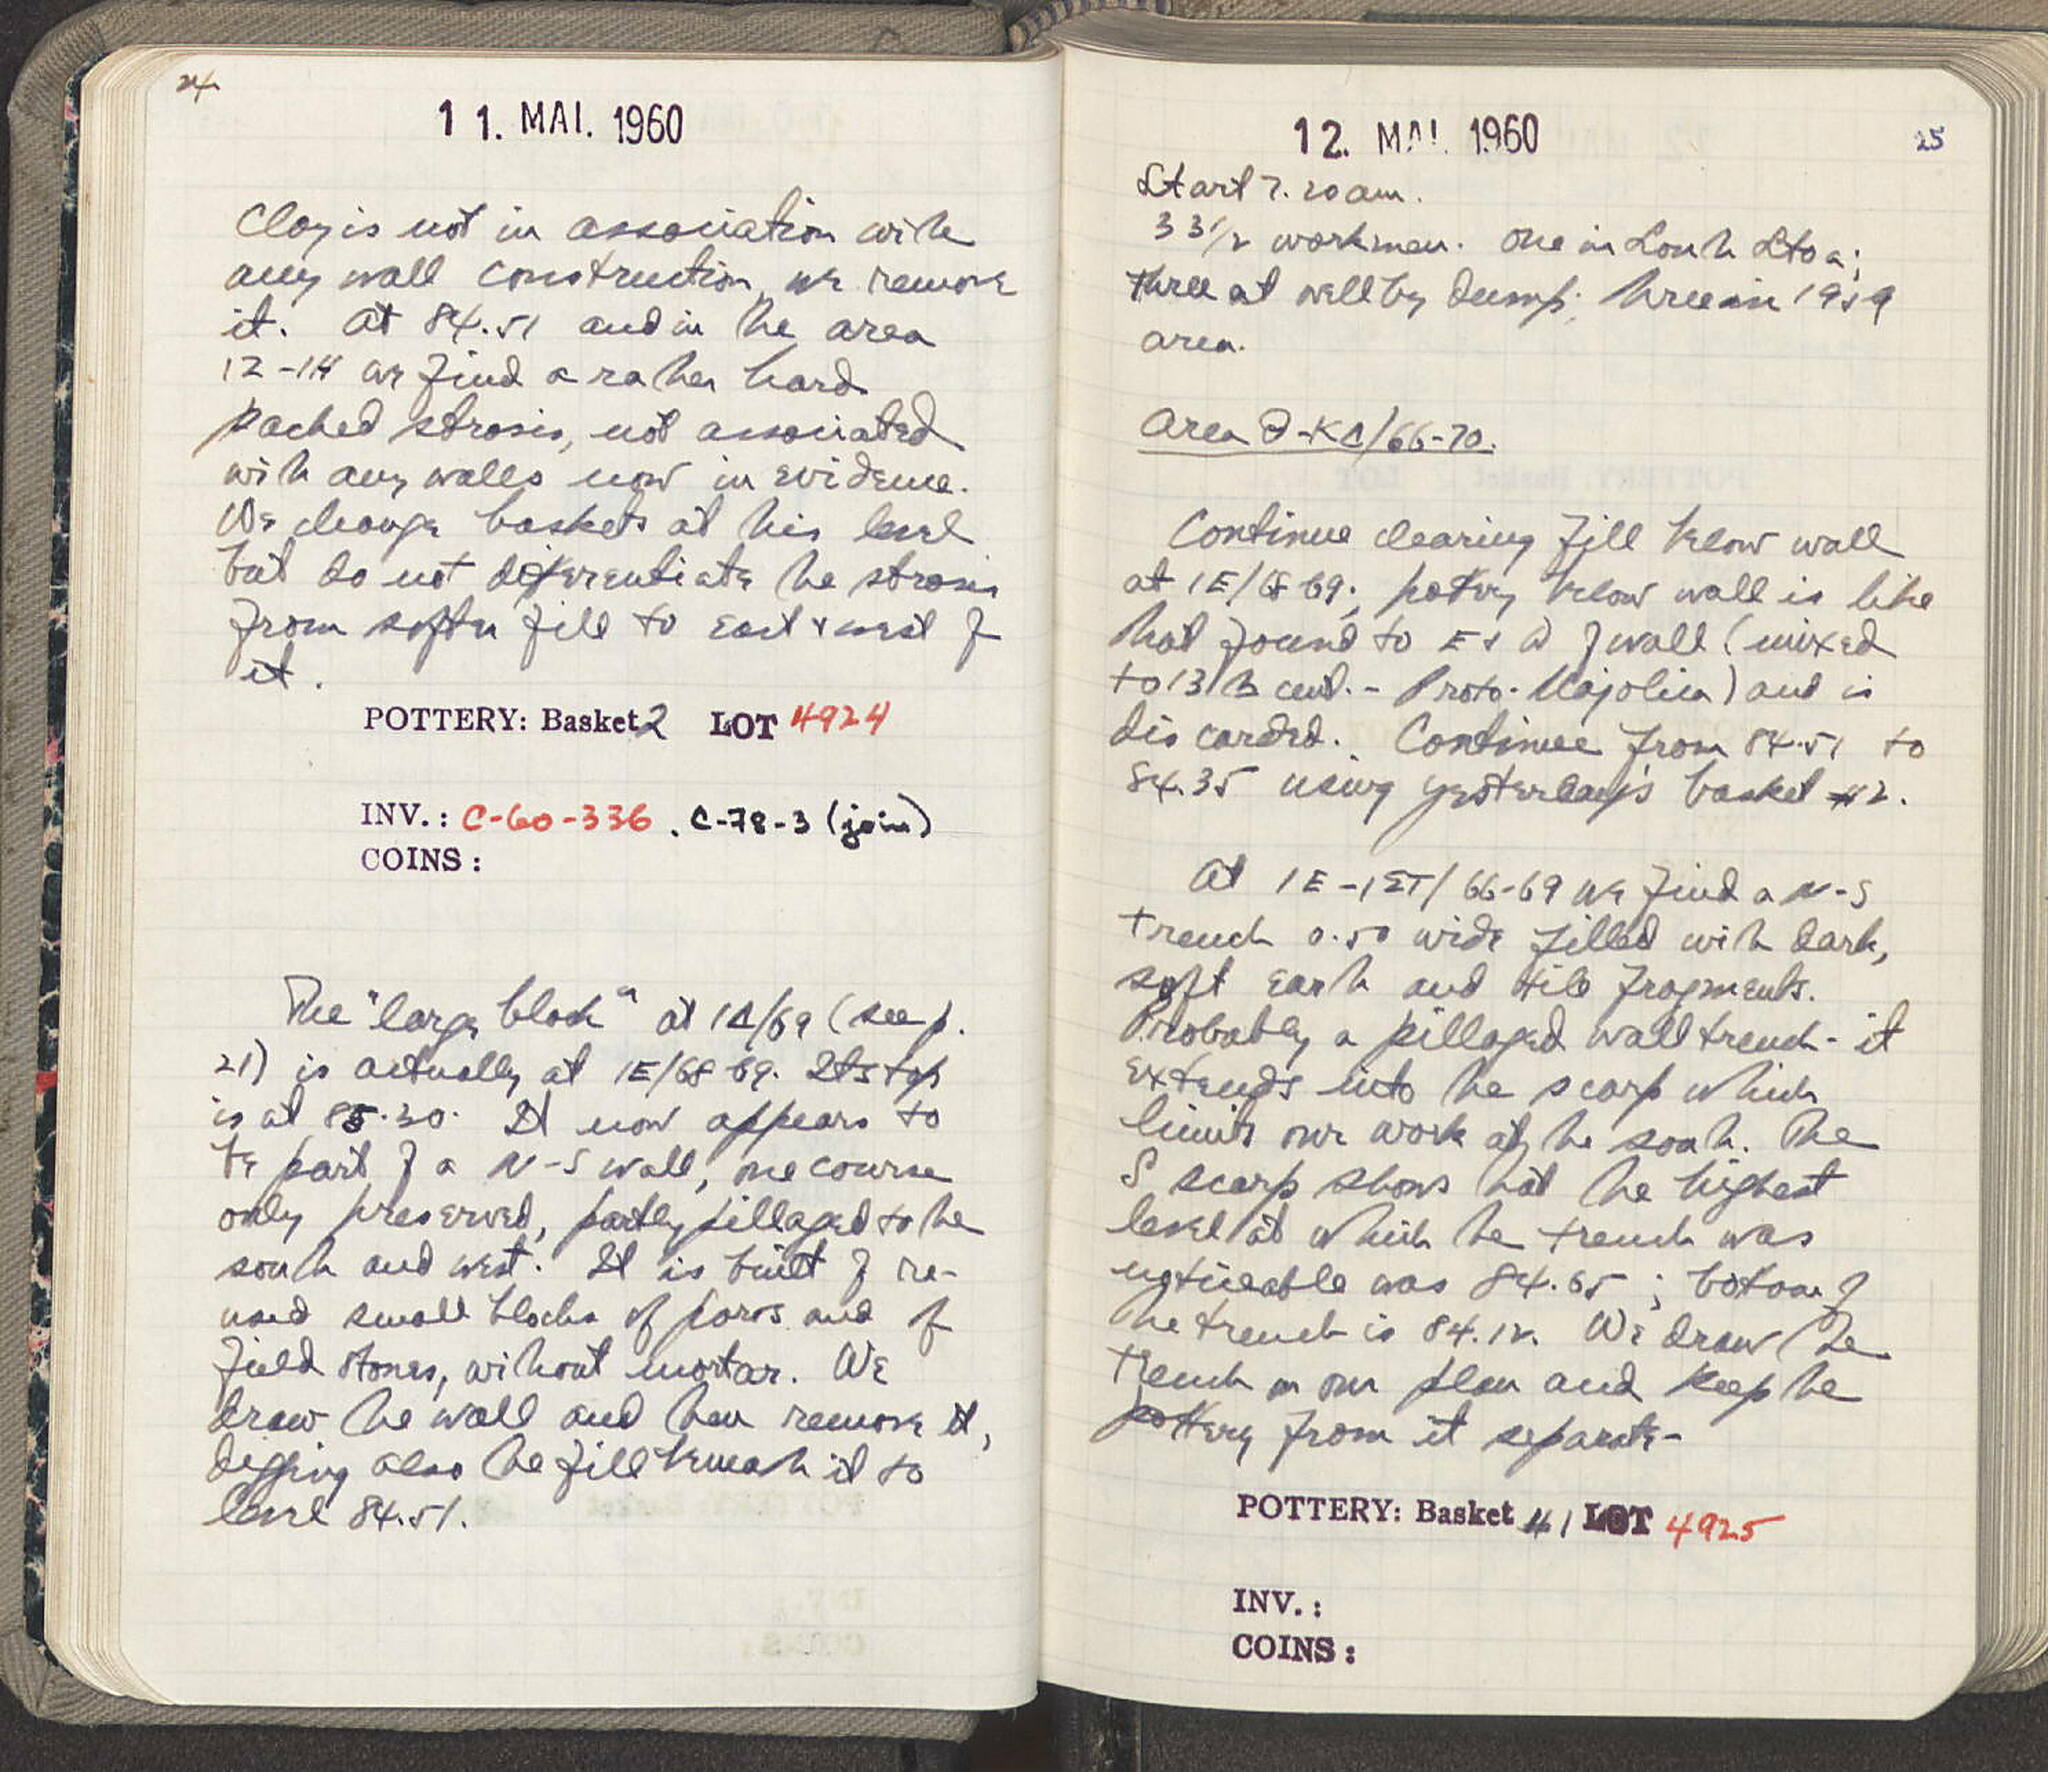 24
11. MAI. 1960
Clay is not in association with
any wall construction, we remove
it. At 84.51 and in the area
12-14 we find a rather hard
packed strosis, not associated
with any walls now in evidence.
We change baskets at this level
but do not differentiate the strosis
from softer fill to east + west of
it.
POTTERY: Basket 2 LOT 4924
INV.: C-60-336, C-78-3 (join)
COINS:
The "large block" at 1Δ/69 (see p.
21) is actually at 1E/68-69. Its top
is at 85.30. It now appears to
be part of a N-S wall, one course
only preserved, partly pillaged to the
south and west. It is built of re-
used small blocks of poros and of
field stones, without mortar. We
draw the wall and then remove it,
digging also the fill beneath it to
level 84.51.
12. MAI. 1960
25
Start 7.20 am.
33 1/2 workmen. One in South Stoa;
three at well by dump; three in 1959
area.
Area -KΔ/66-70.
Continue clearing fill below wall
at 1E/68-69; pottery below wall is like
that found to E + W of wall (mixed
to 13th cent. - Proto-Majolica) and is
discarded. Continue from 84.51 to
84.35 using yesterday's basket #2.
At 1E-1ΣT/66-69 we find a N-S
trench 0.50 wide filled with dark,
soft earth and tile fragments.
Probably a pillaged wall trench - it
extends into the scarp which
limits our work at the south. The
S scarp shows that the highest
level at which the trench was
noticeable was 84.65; bottom of
the trench is 84.12. We draw the
trench on our plan and keep the
pottery from it separate-
POTTERY: Basket #1 LOT 4925
INV.:
COINS: